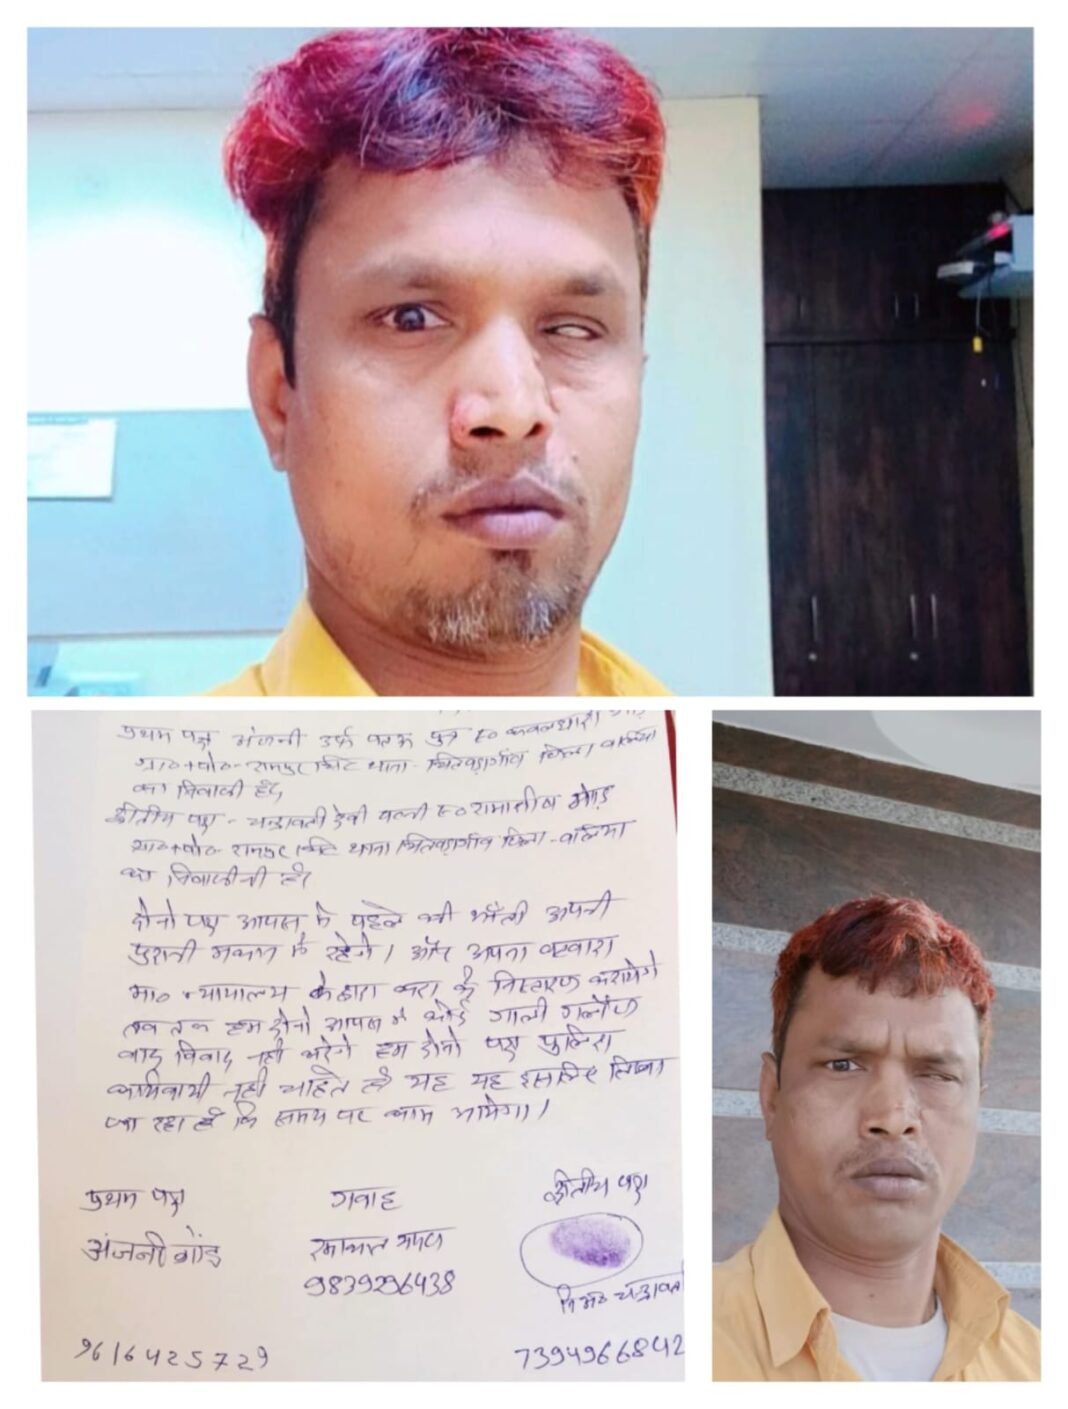 प्रथम पक्ष अंजनी उर्फ पुत्र स्व०
ग्रा०+पो०- रामपुर चिट थाना- चितबड़ागाँव जिला बलिया
का निवासी हूँ,
द्वितीय पक्ष - चन्द्रावती देवी पत्नी स्व० रामाशीष गोड़
ग्रा०+पो०- रामपुर चिट थाना चितबड़ागाँव जिला-बलिया
का निवासीनी हूँ।
दोनो पक्ष आपस मे पहले की भाँती अपनी
पुरानी मकान मे रहेगे। और अपना बटवारा
मा० न्यायालय के द्वारा करा के निस्तारण करायेगे
तब तक हम दोनो आपस मे कोई गाली गलौज
वाद विवाद नही करेगे हम दोनो पक्ष पुलिस
कार्यवायी नही चाहते है यह यह इसलिए लिखा
जा रहा है कि समय पर काम आयेगा।
प्रथम पक्ष गवाह द्वितीय पक्ष
अंजनी गोंड़
9839296438
नि०अं० चन्द्रावती
9616425729 7394966842